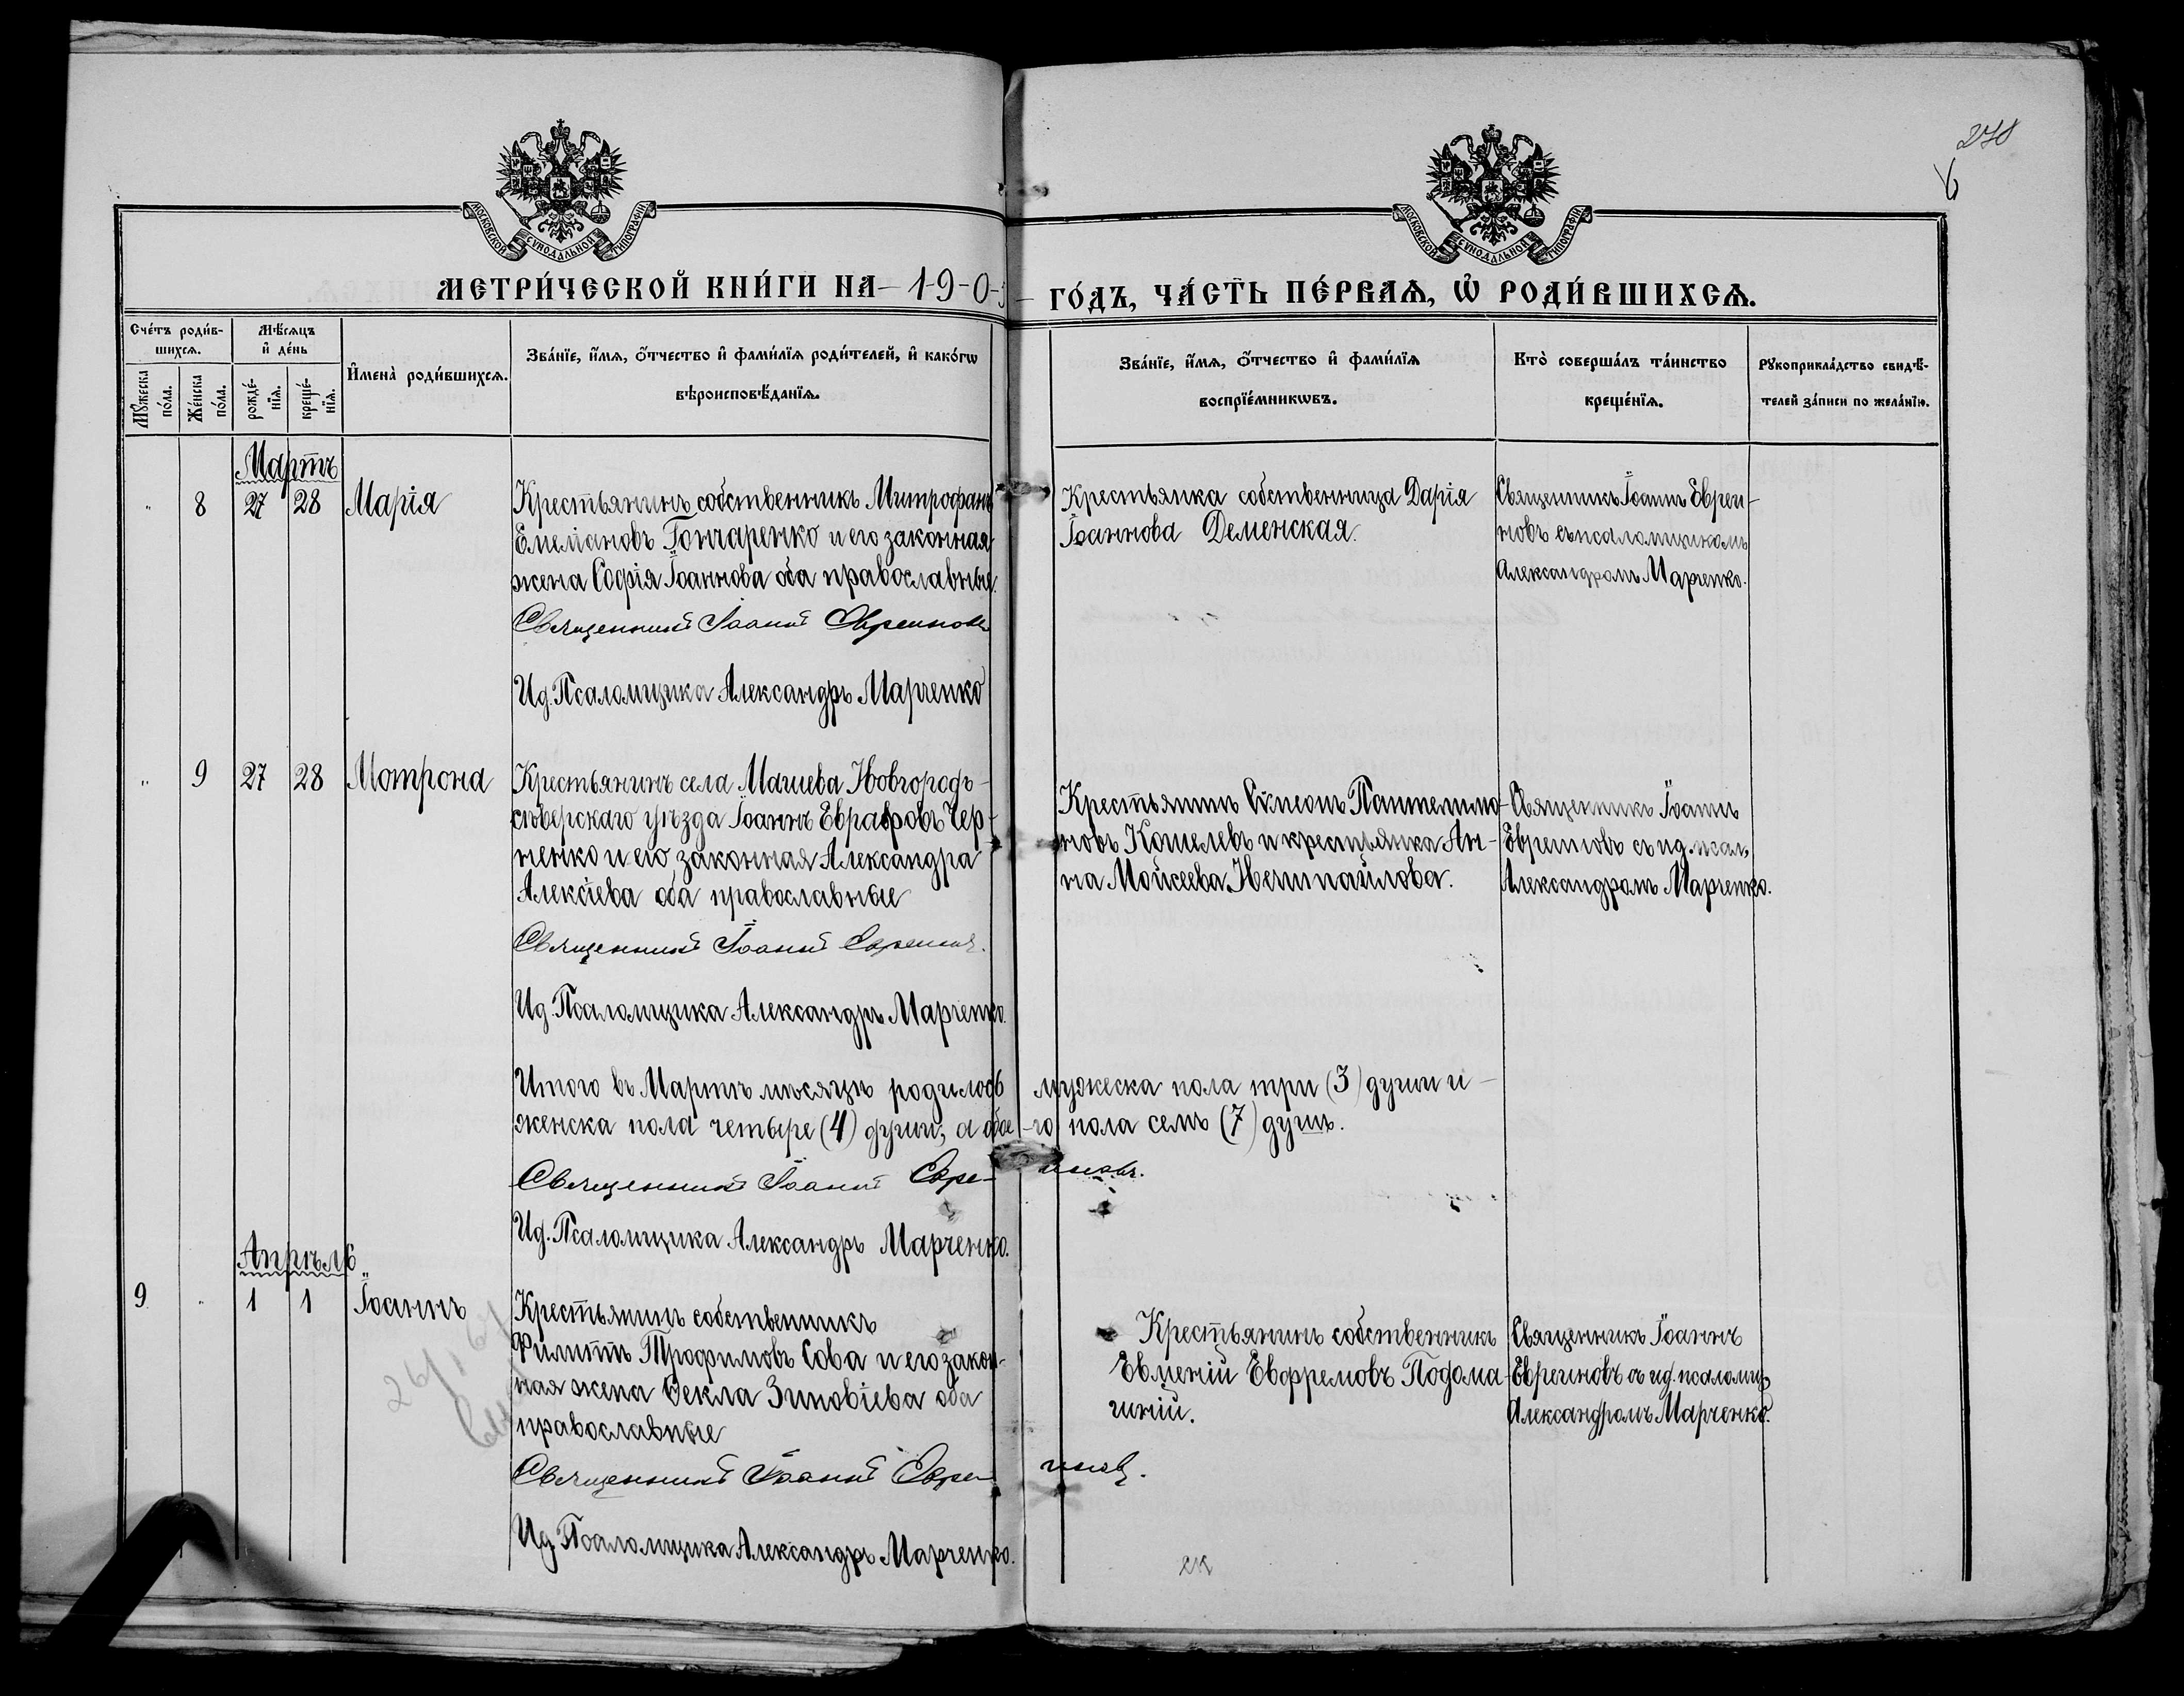 278
6
МОСКОВСКОЙ СѴНОДАЛЬНОЙ ТИПОГРАФІИ
МОСКОВСКОЙ СѴНОДАЛЬНОЙ ТИПОГРАФІИ
МЕТРИ́ЧЕСКОЙ КНИ́ГИ НА -1-9-0- ГО́ДЪ, ЧА́СТЬ ПЕ́РВАѦ, Ѡ РОДИ́ВШИХСѦ.
Сче́тъ роди́в-
шихсѧ.
Мꙋжеска по́ла.
Же́нска по́ла.
Мѣ́сѧцъ
и де́нь
рожде́-
нїѧ.
креще́-
нїѧ.
Имена̀ роди́вшихсѧ.
Зва́нїе, и́мѧ, ѻ́тчество и фами́лїѧ роди́телей, и како́гѡ
вѣроисповѣ́данїѧ.
Зва́нїе, и́мѧ, ѻ́тчество и фами́лїѧ
воспрїе́мникѡвъ.
Кто̀ соверша́лъ та́инство
креще́нїѧ.
Рꙋкоприкла́дство свидѣ́-
телей за́писи по жела́нїю.
Мартъ
" 8 27 28 Марія
Крестьянинъ собственникъ Митрофанъ
Емеліановъ Гончаренко и его законная
жена Софія Іоаннова оба православные.
Священникъ Іоаннъ Евреиновъ
Ид. Псаломщика Александръ Марченко
Крестьянка собственница Дарія
Іоаннова Деменская.
Священникъ Іоаннъ Евреи-
новъ съ псаломщикомъ
Александромъ Марченко.
" 9 27 28 Мотрона
Крестьянинъ села Мачиева Новгородъ-
сѣверскаго уѣзда Іоаннъ Евграфовъ Чер-
ненко и его законная Александра
Алексіева оба православные
Священникъ Іоаннъ Евреиновъ.
Ид. Псаломщика Александръ Марченко.
Крестьянинъ Сѵмеонъ Пантелимо-
новъ Кошелевъ и крестьянка Ан-
на Моисеева Нечипайлова.
Священникъ Іоаннъ
Евреиновъ съ ид. псал.
Александромъ Марченко.
Итого въ Мартѣ мѣсяцѣ родилось мужеска пола три (3) души и
женска пола четыре (4) души, а обое-го пола семь (7) душъ.
Священникъ Іоаннъ Евре-иновъ.
Ид. Псаломщика Александръ Марченко.
Апрѣль
9 " 1 1 Іоаннъ
Крестьянинъ собственникъ
Филиппъ Трофимовъ Сова и его закон-
ная жена Ѳекла Зиновіева оба
православные
Священникъ Іоаннъ Евре-иновъ.
Ид. Псаломщика Александръ Марченко.
Крестьянинъ собственникъ
Евмений Евфремовъ Подома-
чиній.
Священникъ Іоаннъ
Евреиновъ съ ид. псаломщ.
Александромъ Марченко.